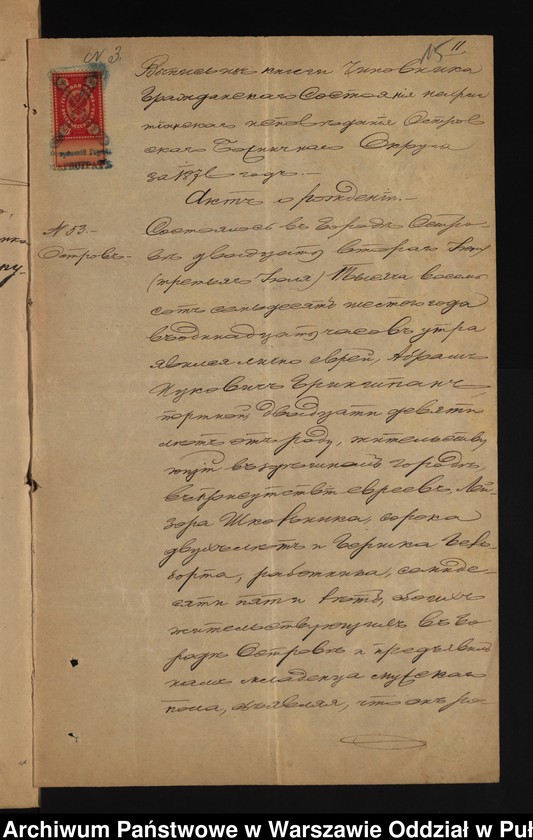 N 3.
15 11
Выпись изъ книги Чиновника
Гражданскаго Состоянія нехрис
тіанскихъ исповѣданій Остров
скаго Округа
за 1876 годъ.
Актъ о рожденіи.
N 53.
Островъ.
Состоялось въ городѣ Остро-
вѣ двадцать втораго Іюня
(третьяго Іюля) тысяча восемь
сотъ семьдесятъ шестаго года
въ одинадцать часовъ утра
явился лично еврей, Абрамъ
Гринштпанъ,
портной, двадцати девяти
лѣтъ отъ роду, жительству
ющій въ здѣшнемъ городѣ,
въ присутствіи евреевъ, Лей-
зора Школьника, сорока
двухъ лѣтъ и Гершка
работника, семиде-
сяти пяти лѣтъ, обоихъ
жительствующихъ въ го
родѣ Островѣ и предъявилъ
намъ младенца мужскаго
пола, объявляя, что онъ ро-
Archiwum Państwowe w Warszawie Oddział w Puł